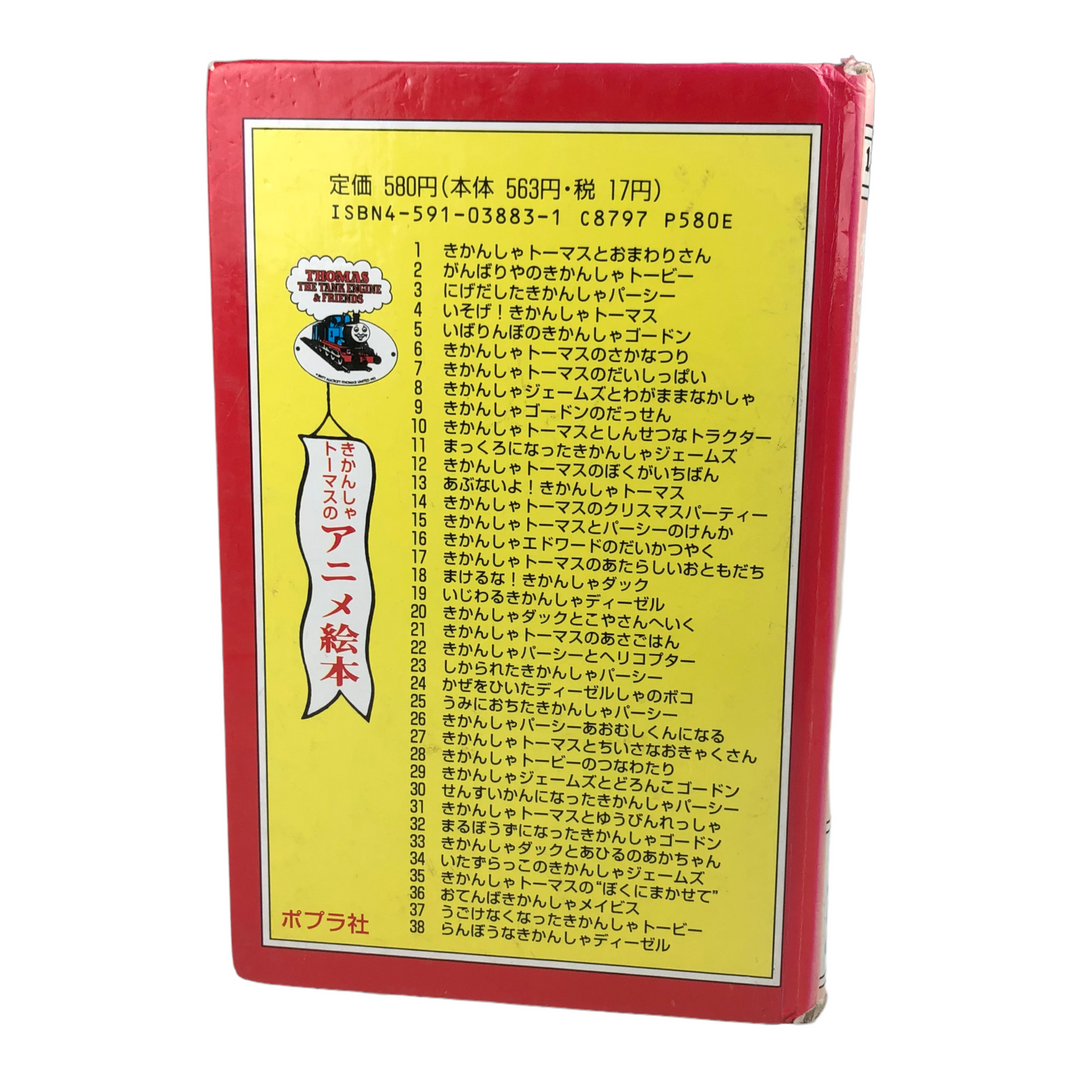 定価 580円(本体 563円・税 17円)
ISBN4-591-03883-1 C8797 P580E
THOMAS
THE TANK ENGINE
& FRIENDS
きかんしゃ
トーマスの
アニメ絵本
1 きかんしゃトーマスとおまわりさん
2 がんばりやのきかんしゃトービー
3 にげだしたきかんしゃパーシー
4 いそげ!きかんしゃトーマス
5 いばりんぼのきかんしゃゴードン
6 きかんしゃトーマスのさかなつり
7 きかんしゃトーマスのだいしっぱい
8 きかんしゃジェームズとわがままなかしゃ
9 きかんしゃゴードンのだっせん
10 きかんしゃトーマスとしんせつなトラクター
11 まっくろになったきかんしゃジェームズ
12 きかんしゃトーマスのぼくがいちばん
13 あぶないよ!きかんしゃトーマス
14 きかんしゃトーマスのクリスマスパーティー
15 きかんしゃトーマスとパーシーのけんか
16 きかんしゃエドワードのだいかつやく
17 きかんしゃトーマスのあたらしいおともだち
18 まけるな!きかんしゃダック
19 いじわるきかんしゃディーゼル
20 きかんしゃダックとこやさんへいく
21 きかんしゃトーマスのあさごはん
22 きかんしゃパーシーとヘリコプター
23 しかられたきかんしゃパーシー
24 かぜをひいたディーゼルしゃのボコ
25 うみにおちたきかんしゃパーシー
26 きかんしゃパーシーあおむしくんになる
27 きかんしゃトーマスとちいさなおきゃくさん
28 きかんしゃトービーのつなわたり
29 きかんしゃジェームズとどろんこゴードン
30 せんすいかんになったきかんしゃパーシー
31 きかんしゃトーマスとゆうびんれっしゃ
32 まるぼうずになったきかんしゃゴードン
33 きかんしゃダックとあひるのあかちゃん
34 いたずらっこのきかんしゃジェームズ
35 きかんしゃトーマスの“ぼくにまかせて”
36 おてんばきかんしゃメイビス
37 うごけなくなったきかんしゃトービー
38 らんぼうなきかんしゃディーゼル
ポプラ社